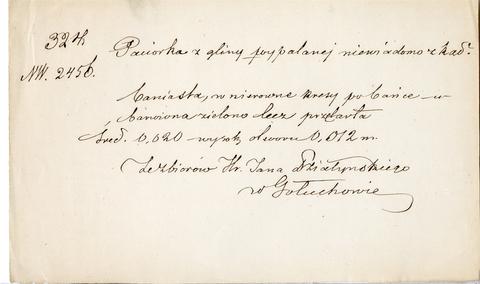 324
Paciorka z gliny wypalanej niewiadomo z kąd.
NW. 2456.
baniasta, w nierówne kresy po bańce
zielono lecz przetarta
śred. 0,020 wysok. otworu 0,012 m.
Ze zbiorów Hr. Jana Działyńskiego
w Gołuchowie